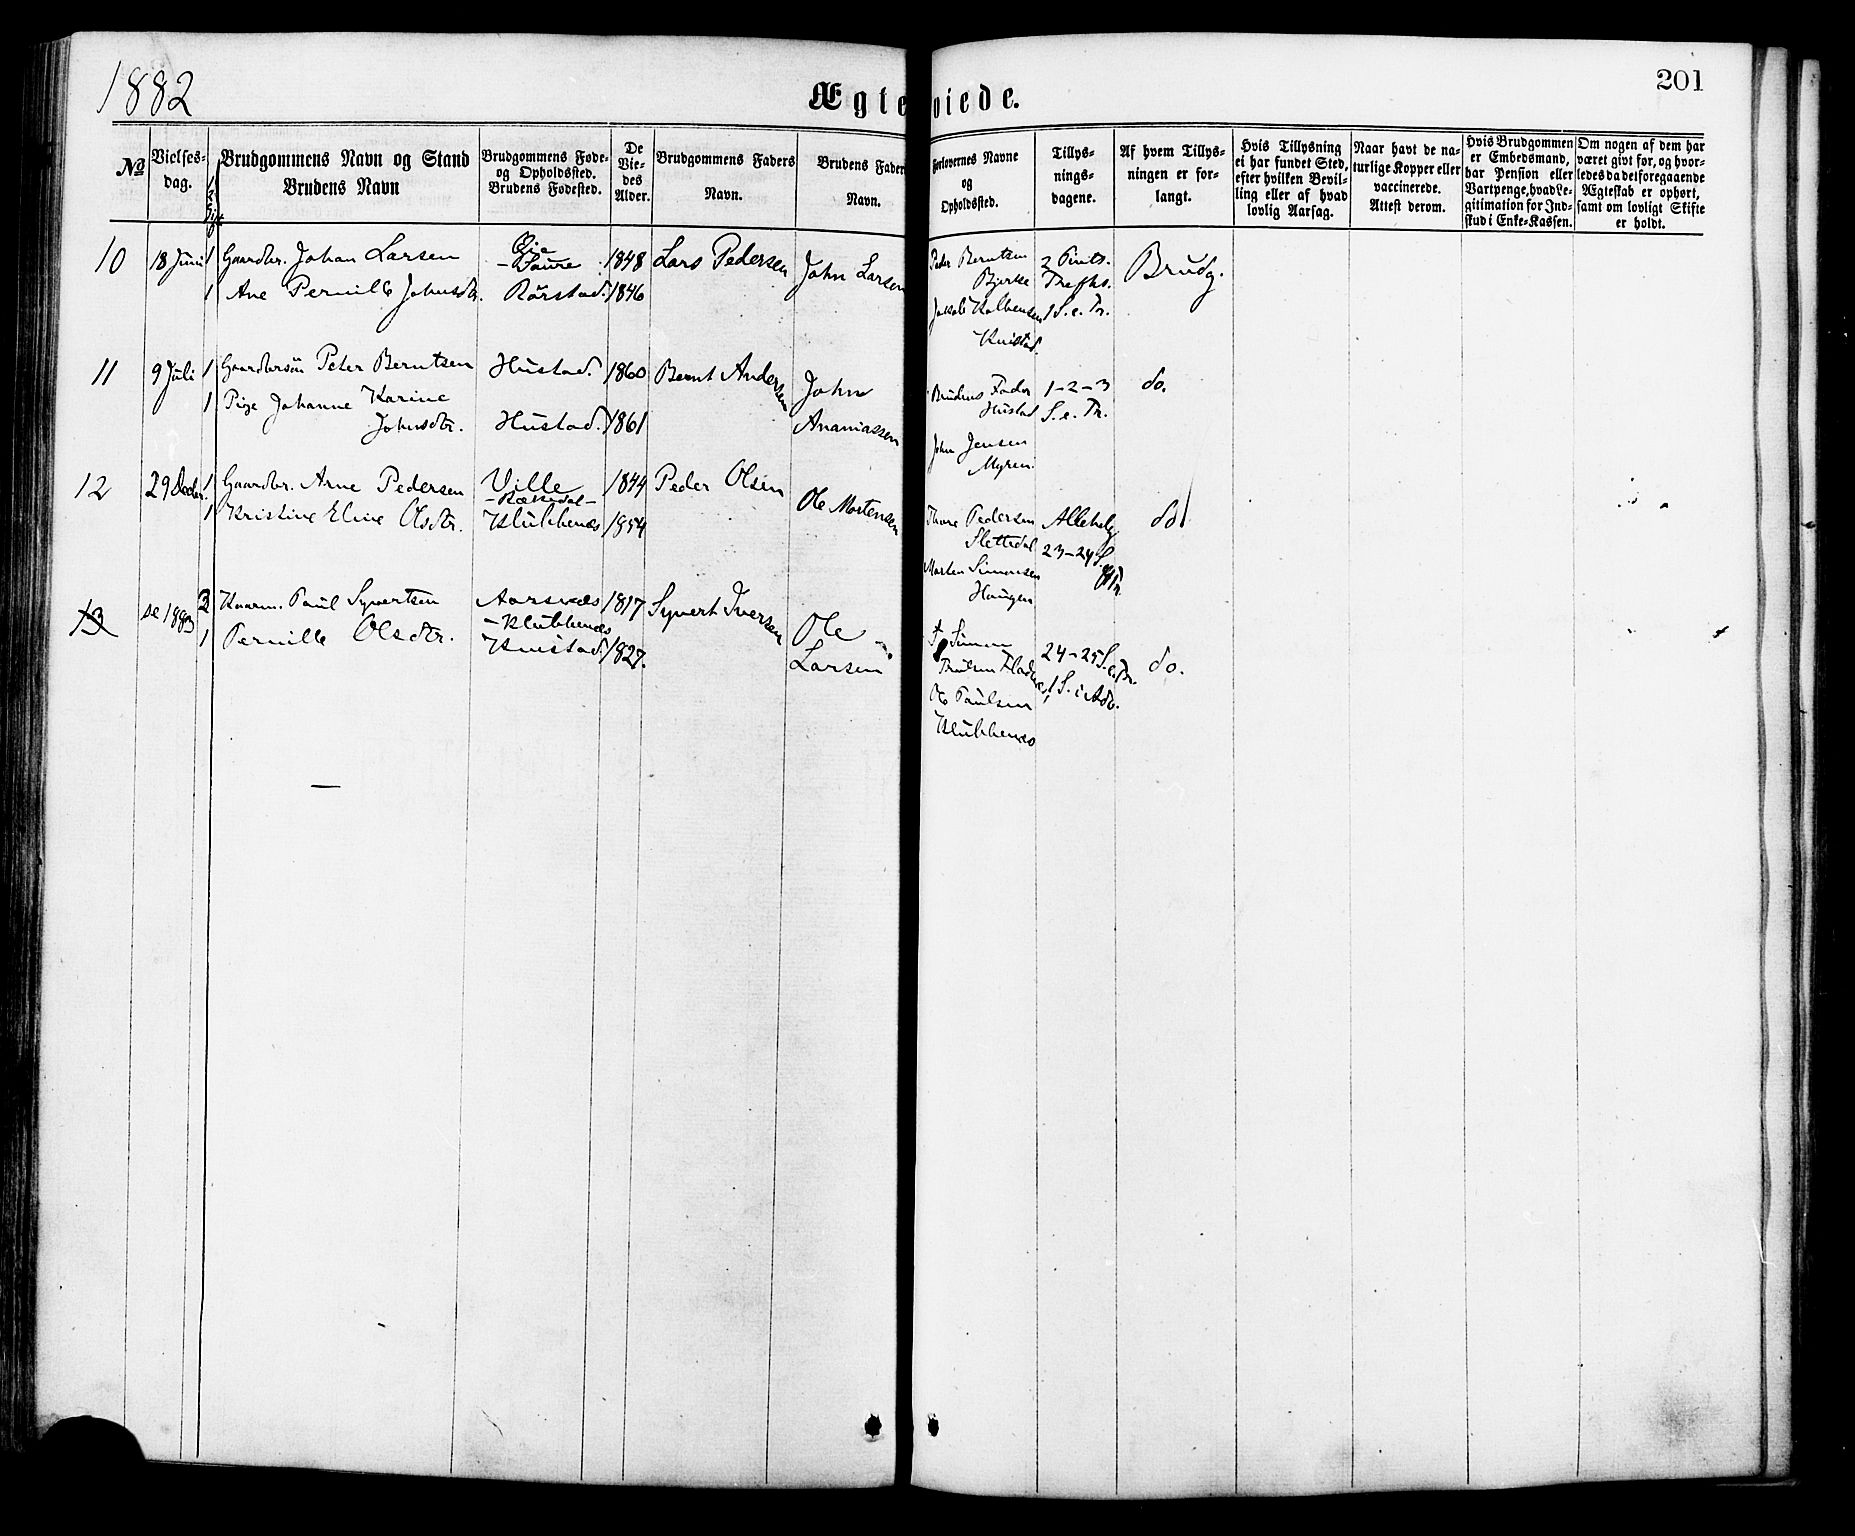 1882
Ægteviede.
201
No
Vielses-
dag.
Brudgommens Navn og Stand
Brudens Navn
Brudgommens Føde-
og Opholdssted.
Brudens Fødested.
De
Vie-
des
Alder.
Brudgommens Faders
Navn.
Brudens Faders
Navn.
Forlovernes Navne
og
Opholdssted.
Tillys-
nings-
dagene.
Af hvem Tillys-
ningen er for-
langt.
Hvis Tillysning
ei har fundet Sted,
efter hvilken Bevil-
ling eller af hvad
lovlig Aarsag.
Naar havt de na-
turlige Kopper eller
vaccinerede.
Attest derom.
Hvis Brudgommen
er Embedsmand,
har Pension eller
Vartpenge, hvad Le-
gitimation for Ind-
skud i Enke-Kassen.
Om nogen af dem har
været givt før, og hvor-
ledes da det foregaaende
Ægteskab er ophørt,
samt om lovligt Skifte
er holdt.
10 18 Juni 1 Gaardbr. Johan Larsen Øie 1848 Lars Pedersen John Larsen
- Taure
1 Ane Pernille Johnsdtr. Rørstad. 1846
Peder Berntsen 2 Pints. Brudg.
Bjerke Trefhs.
Jakob Kolbensen 1 S. e. Tr.
Knistad.
11 9 Juli 1 Gaardbrsøn Peter Berntsen Hustad. 1860 Bernt Andersen John
1 Pige Johanne Karine
Johnsdtr. Hustad. 1861 Ananiassen
Brudens Fader 1-2-3 do.
Hustad S. e. Tr.
John Jensen
Myren.
12 29 Decbr. 1 Gaardbr. Arne Pedersen Ville 1844 Peder Olsen Ole Mortensen
1 Kristine Eline Olsdtr. Klubbenæs 1854
Thore Pedersen Allehelg do.
Slettedal 23-24 S.
Morten Simonsen e Tr.
Haugen
13 se 1883 2 Kaarm. Paul Syvertsen Aarsnæs 1817 Syvert Iversen Ole
- Klubbenæs
1 Pernille Olsdtr. Knistad. 1827. Larsen
Simon 24-25 S. e. Tr. do.
Paulsen 1 S. i Adv.
Ole Paulsen
Klubbenæs